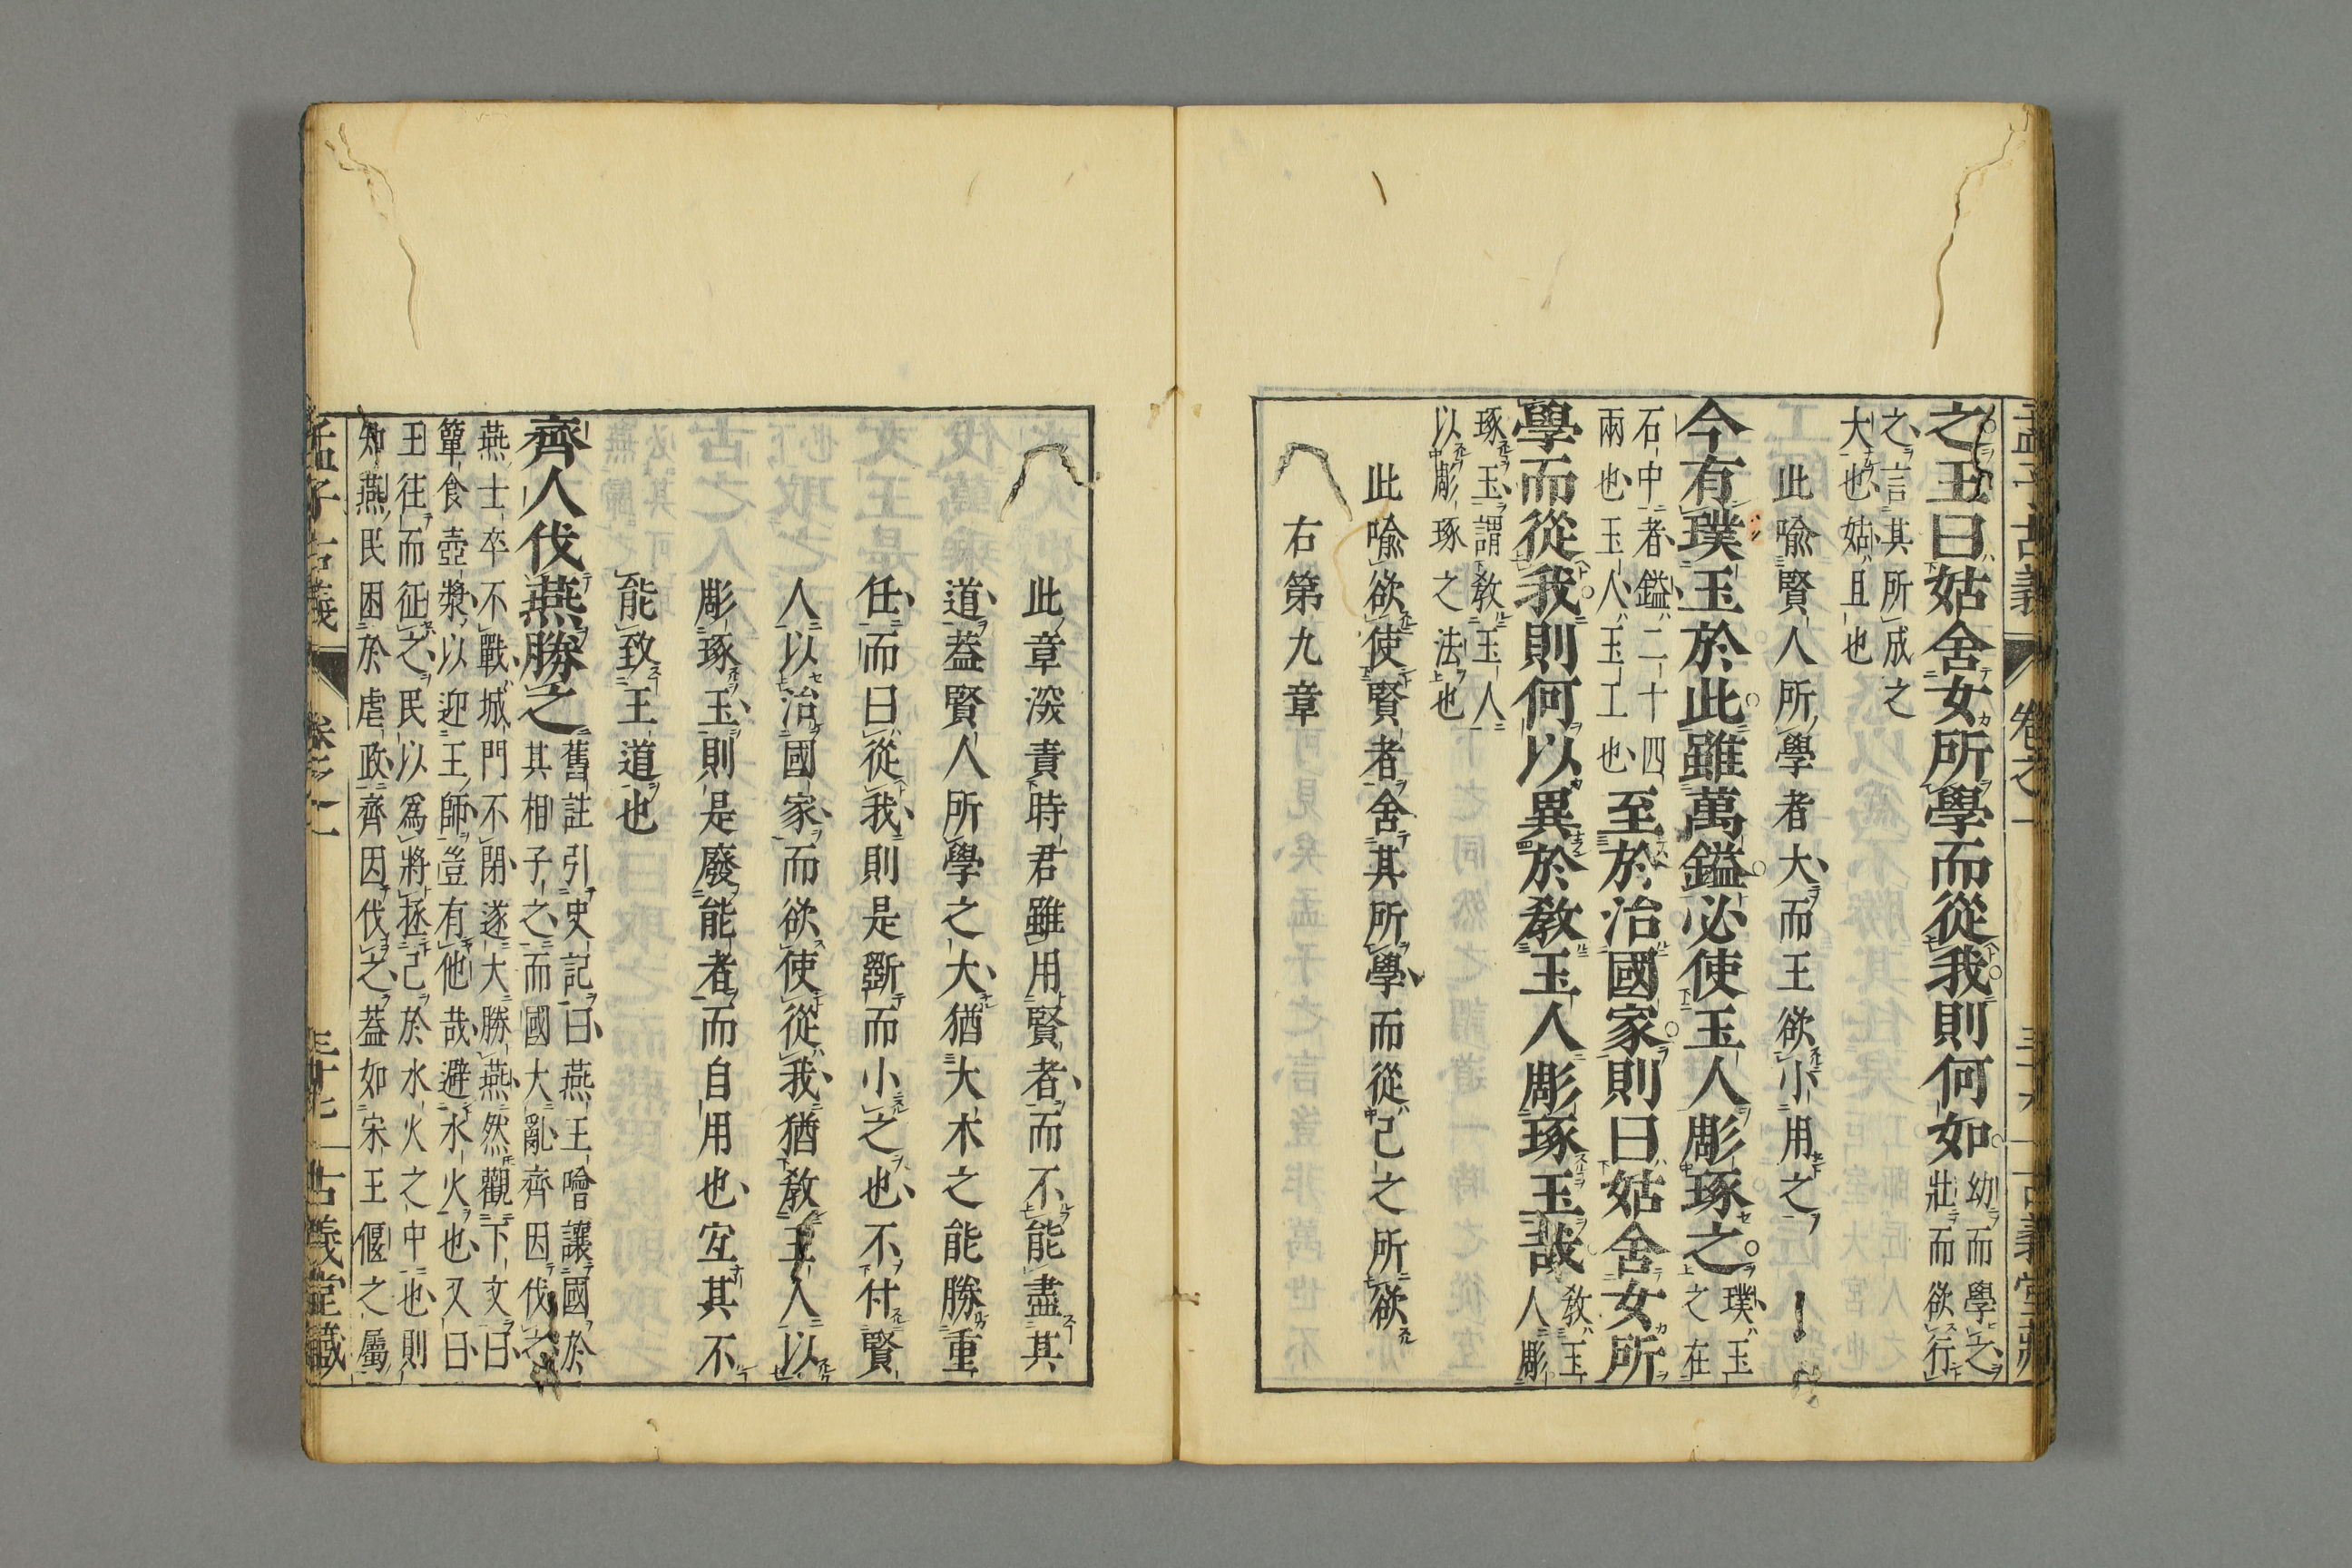 之王曰姑舍女所學而從我則何如幼而學之壯而欲行
之言其所成之大也姑且也
此喩賢人所學者大而王欲小用之
今有璞玉於此雖萬鎰必使玉人彫琢之璞玉之在
石中者鎰二十四兩也玉人玉工也至於治國家則曰姑舍女所
學而從我則何以異於敎玉人彫琢玉哉敎玉人彫
琢玉謂敎玉人以彫琢之法也
此喩欲使賢者舍其所學而從己之所欲
右第九章
此章深責時君雖用賢者而不能盡其
道蓋賢人所學之大猶大木之能勝重
任而曰從我則是斲而小之也不付賢
人以治國家而欲使從我猶敎玉人以
彫琢玉則是廢能者而自用也宜其不
能致王道也
齊人伐燕勝之舊註引史記曰燕王噲讓國於其相子之而國大亂齊因伐之
燕士卒不戰城門不閉遂大勝燕然觀下文曰
簞食壺漿以迎王師豈有他哉避水火也又曰
王往而征之民以爲將拯己於水火之中也則
知燕民困於虐政齊因伐之蓋如宋王偃之屬
孟子古義 卷之一 三十七 古義堂藏